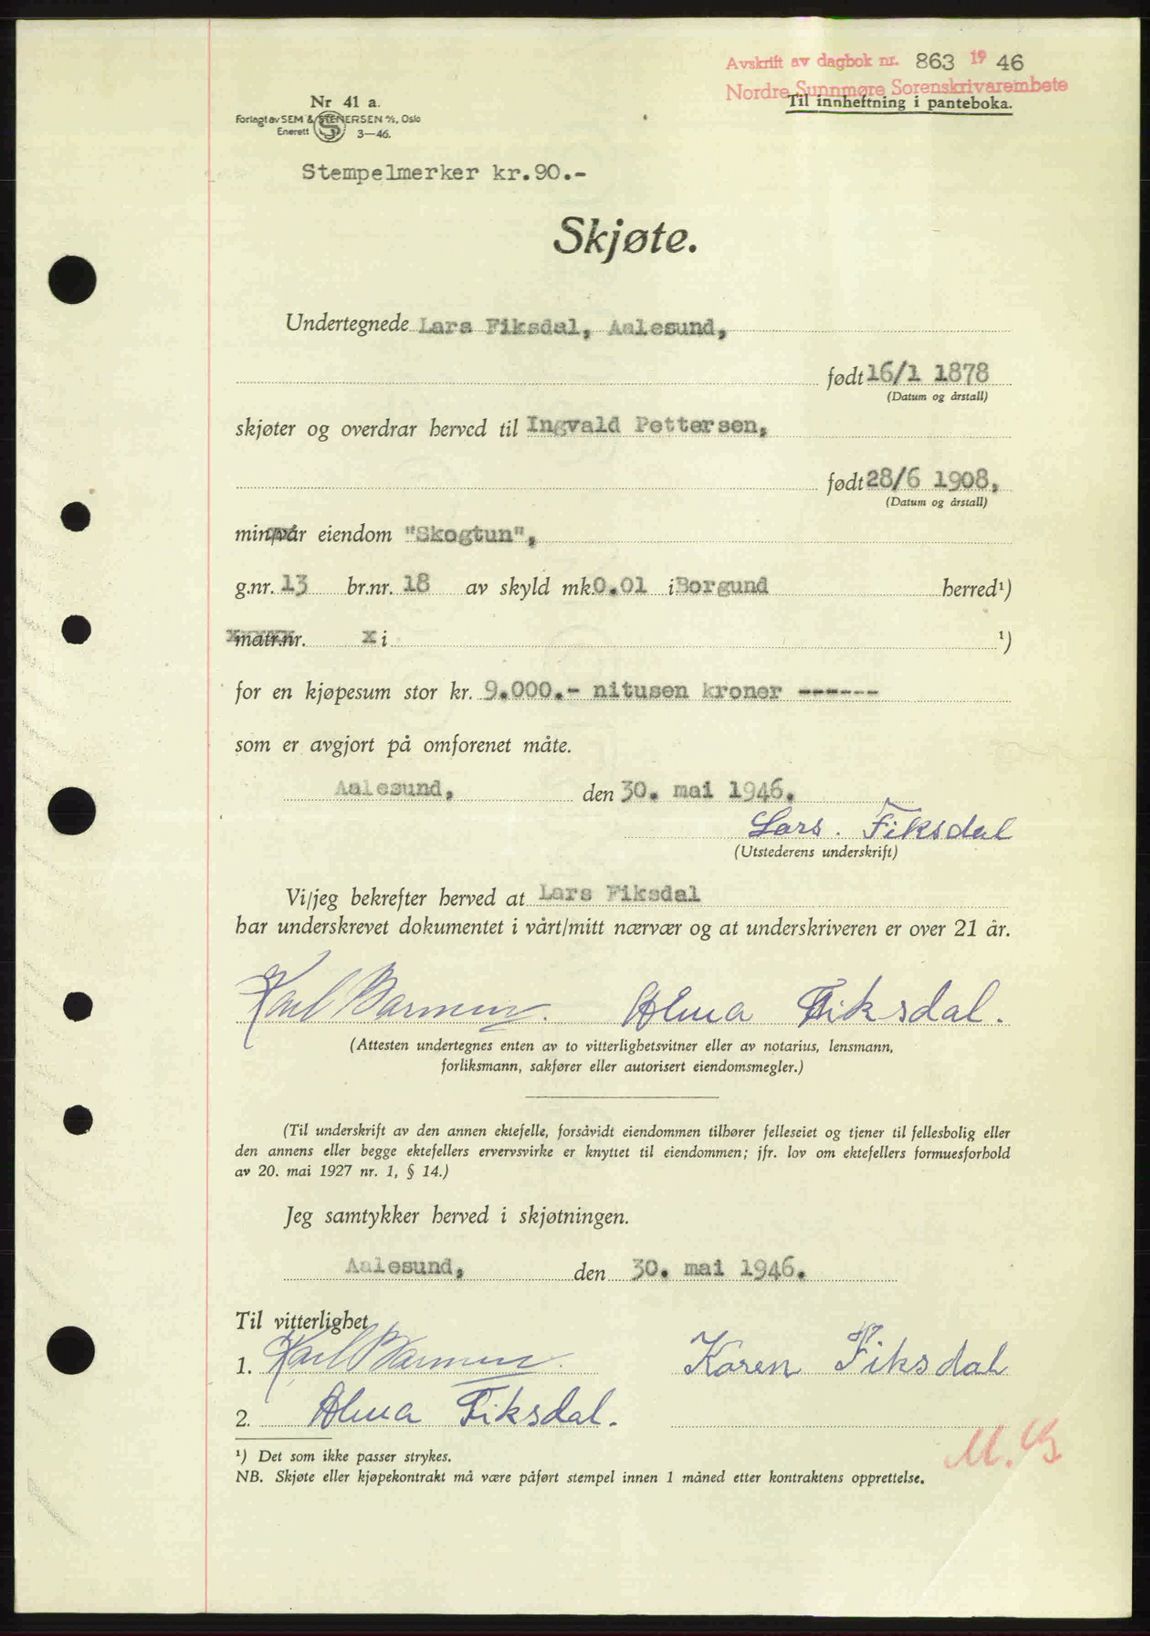 Avskrift av dagbok nr. 863 19 46
Nordre Sunnmøre Sorenskrivarembete
Til innheftning i panteboka.
Nr 41 a.
Forlagt av SEM & STENERSEN A/S, Oslo
Enerett SS 3—46.
Stempelmerker kr.90.-
Skjøte.
Undertegnede Lars Fiksdal, Aalesund,
født 16/1 1878
(Datum og årstall)
skjøter og overdrar herved til Ingvald Pettersen,
født 28/6 1908,
(Datum og årstall)
min/vår eiendom "Skogtun",
g.nr. 13 br.nr. 18 av skyld mk 0.01 i Borgund herred¹)
matr.nr. x i ¹)
for en kjøpesum stor kr. 9.000.- nitusen kroner ------
som er avgjort på omforenet måte.
Aalesund, den 30. mai 1946.
Lars. Fiksdal
(Utstederens underskrift)
Vi/jeg bekrefter herved at Lars Fiksdal
har underskrevet dokumentet i vårt/mitt nærvær og at underskriveren er over 21 år.
Karl Barmen. Alma Fiksdal.
(Attesten undertegnes enten av to vitterlighetsvitner eller av notarius, lensmann,
forliksmann, sakfører eller autorisert eiendomsmegler.)
(Til underskrift av den annen ektefelle, forsåvidt eiendommen tilhører felleseiet og tjener til fellesbolig eller
den annens eller begge ektefellers ervervsvirke er knyttet til eiendommen; jfr. lov om ektefellers formuesforhold
av 20. mai 1927 nr. 1, § 14.)
Jeg samtykker herved i skjøtningen.
Aalesund, den 30. mai 1946.
Til vitterlighet
1. Karl Barmen. Karen Fiksdal
2. Alma Fiksdal.
¹) Det som ikke passer strykes.
NB. Skjøte eller kjøpekontrakt må være påført stempel innen 1 måned etter kontraktens opprettelse.